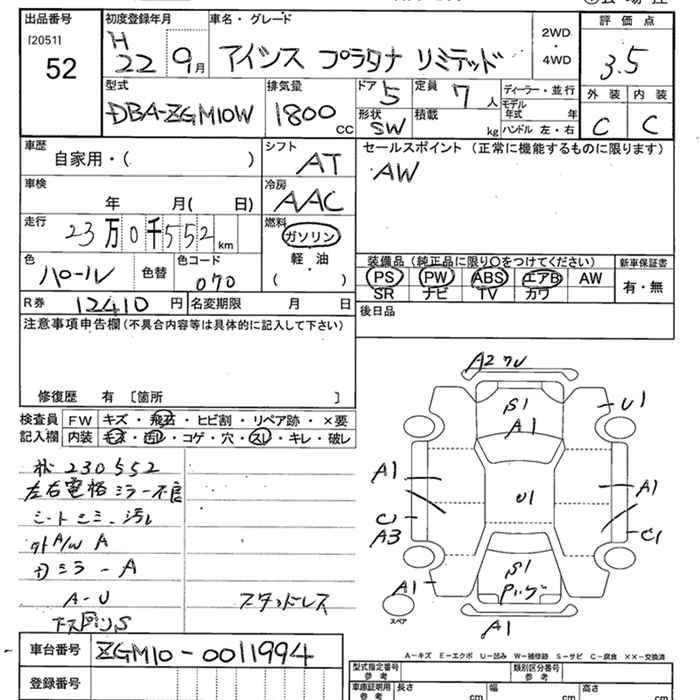 出品番号
[2051]
52
初度登録年月
H
22 9月
車名・グレード
アイシス プラタナ リミテッド
2WD
・
4WD
評価点
3.5
外装 内装
C C
型式
DBA-ZGM10W
排気量
1800 CC
ドア 5
形状
SW
定員 7 人
積載 kg
ディーラー・並行
モデル
年式 年
ハンドル 左・右
車歴
自家用・( )
シフト
AT
セールスポイント (正常に機能するものに限ります)
AW
車検
年 月( 日)
冷房
AAC
走行
23万0千552 km
燃料
ガソリン
軽・油
( )
色
パール
色替
色コード
070
装備品 (純正品に限り○をつけてください)
PS PW ABS エアB AW
SR ナビ TV カワ
新車保証書
有・無
R券 12410 円
名変期限 月 日
後日品
注意事項申告欄 (不具合内容等は具体的に記入して下さい)
修復歴 有 [箇所 ]
検査員
記入欄
FW キズ・飛石・ヒビ割・リペア跡・×要
内装 キズ・汚レ・コゲ・穴・スレ・キレ・破レ
230552
左右電格ミラー不良
シートシミ・汚レ
外A/W A
ミラーA
A-U
下スリS
スタッドレス
A2
S1
A1
U1
A1
U1
A1
A3
C1
S1
A1
A1
スペア
A-キズ E-エクボ U-凹み W-補修跡 S-サビ C-腐食 ××-交換済
車台番号
ZGM10-0011994
登録番号
型式指定番号
参考
類別区分番号
参考
車庫証明用
参考
長さ cm 幅 cm 高さ cm